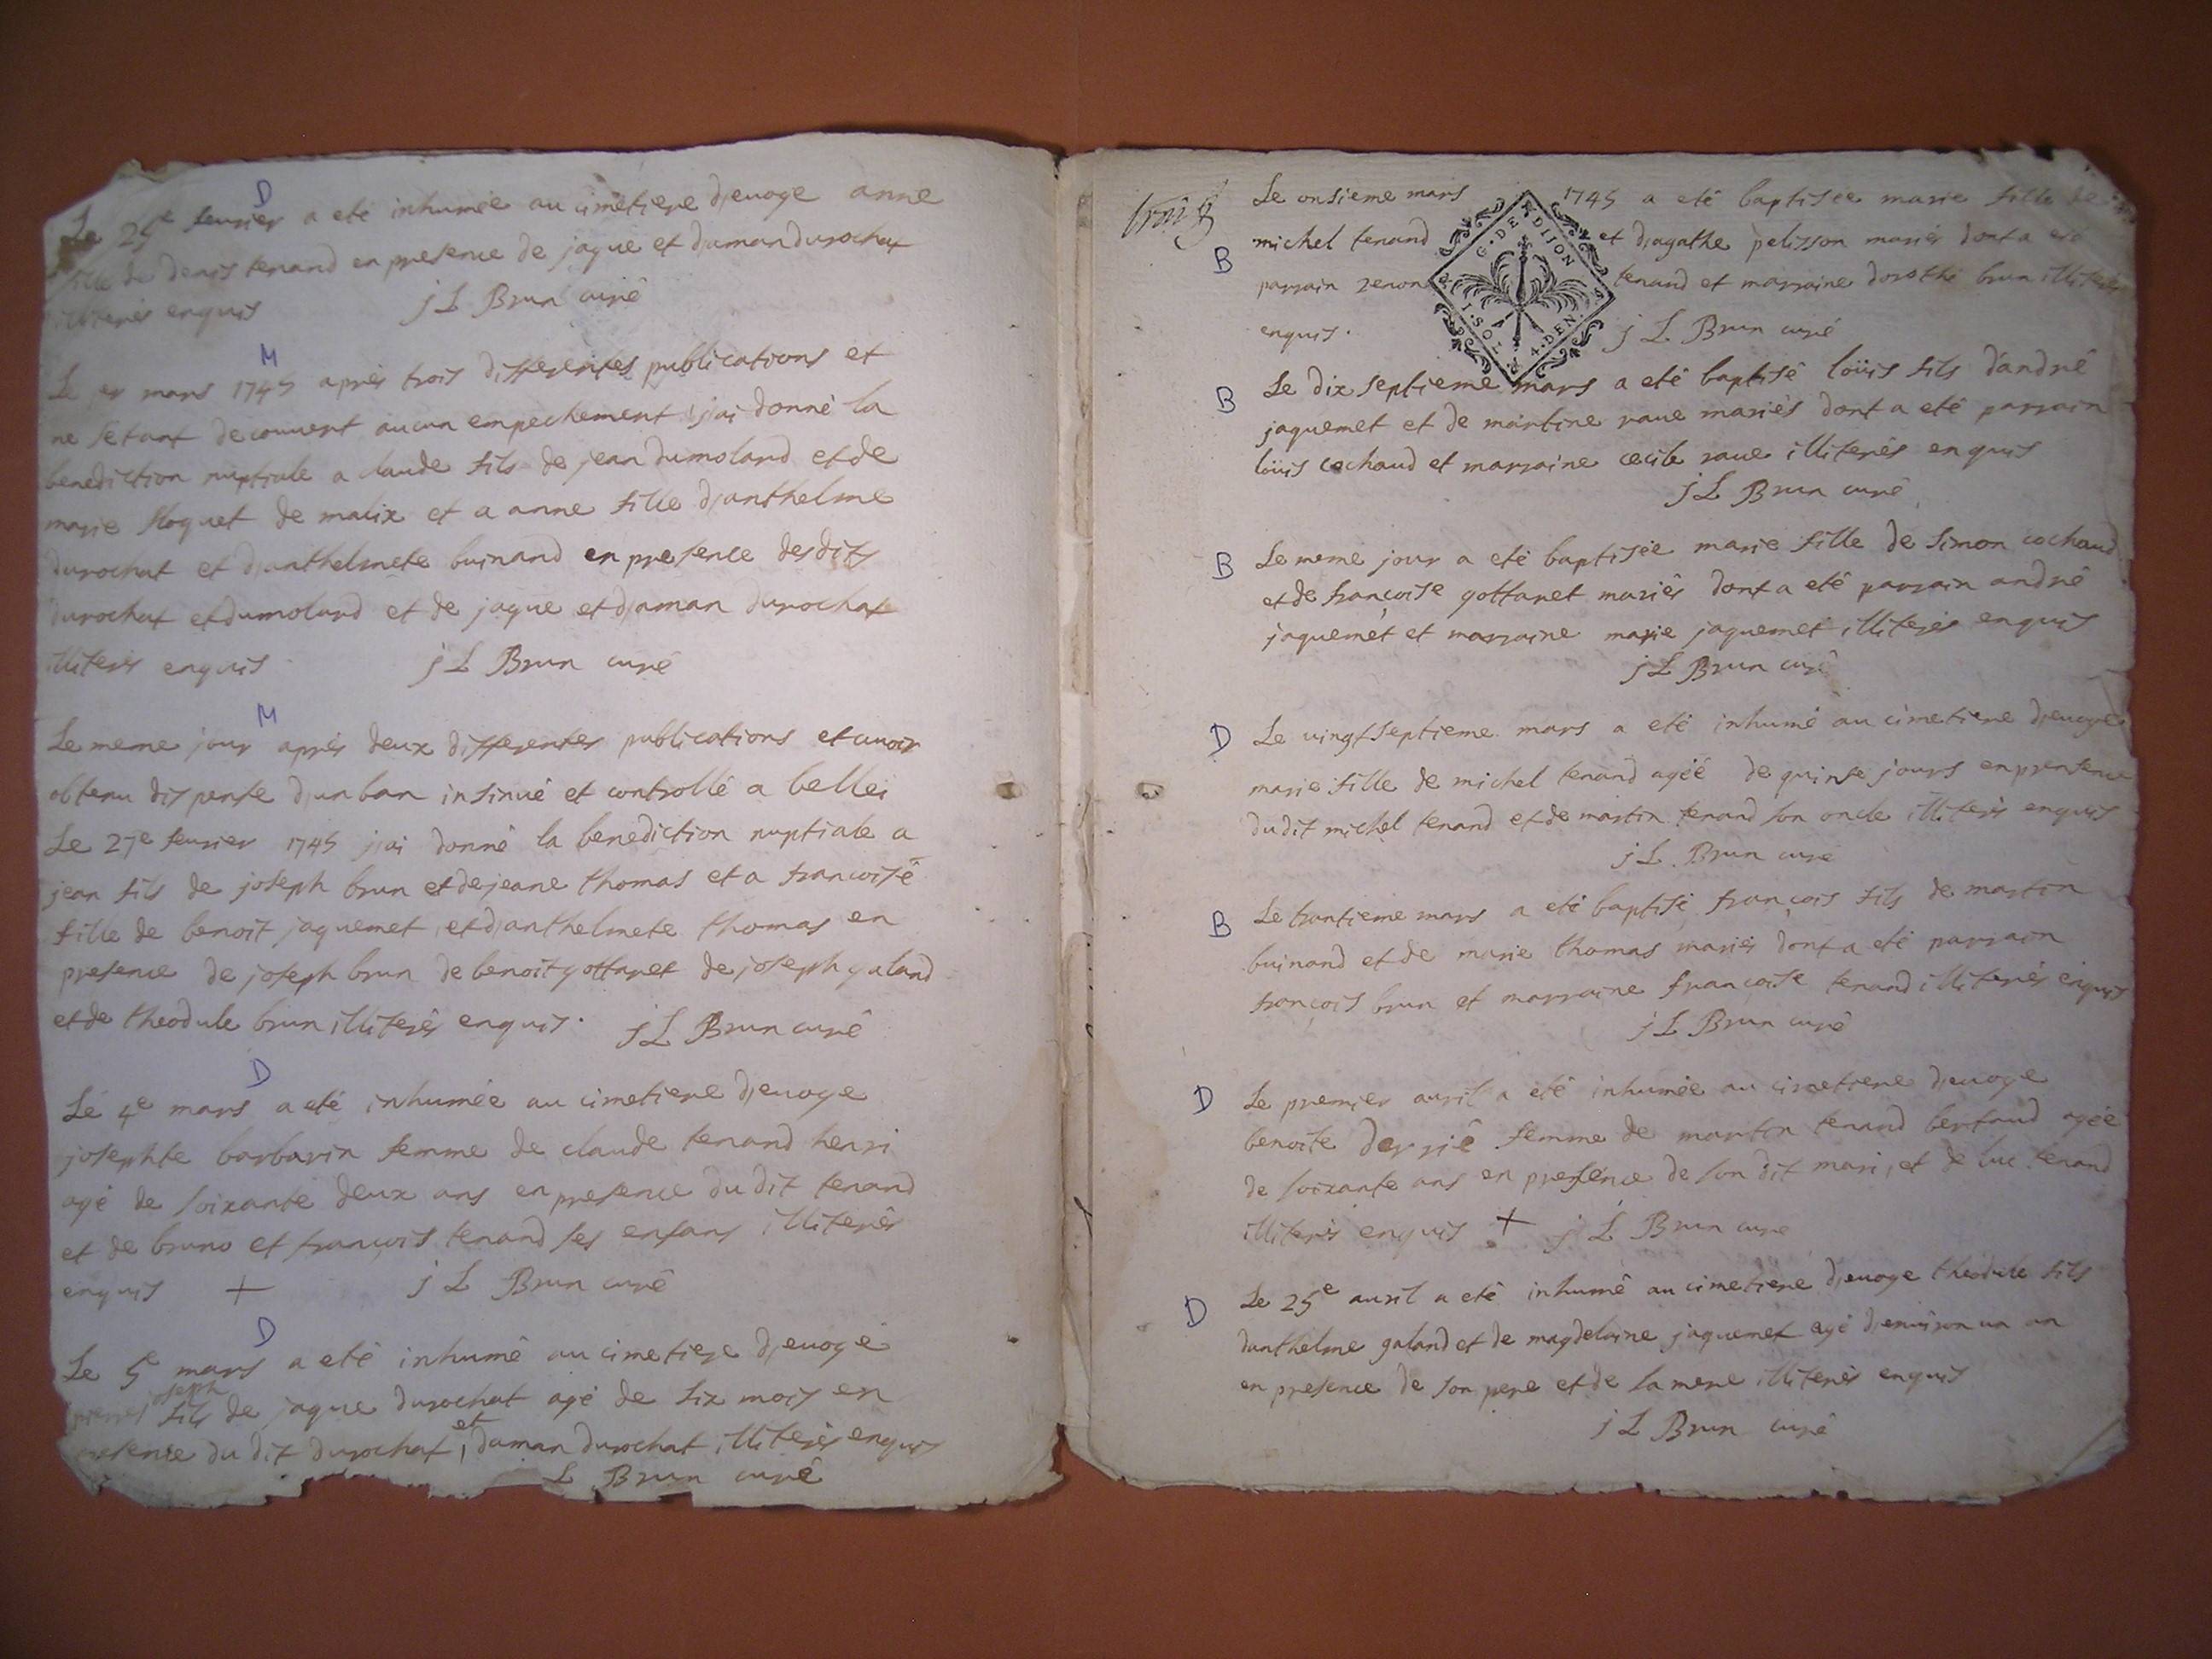 D
Le 25e feurier a eté inhumée au cimetiere d'euoge anne
fille de denis tenand en presence de jaque et d'aman durochat
illiterés enquis j L Brun curé
M
Le er mars 1745 aprés trois differentes publications et
ne s'etant decouuert aucun empechement j'ai donné la
benediction nuptiale a claude fils de jean dumolard et de
marie floquet de malix et a anne fille d'anthelme
durochat et d'anthelmete buinand en presence des dits
durochat et dumolard et de jaque et d'aman durochat
illiterés enquis j L Brun curé
M
Le meme jour aprés deux differentes publications et auoir
obtenu dispense d'un ban insinué et controllé a bellei
Le 27e feurier 1745 j'ai donné la benediction nuptiale a
jean fils de joseph brun et de jeane thomas et a francoise
fille de benoit jaquemet et d'anthelmete thomas en
presence de joseph brun de benoit gottaret de joseph galand
et de theodule brun illiterés enquis. j L Brun curé
D
Le 4e mars a eté inhumée au cimetiere d'euoge
josephte barbarin femme de claude tenand henri
agé de soixante deux ans en presence du dit tenand
et de bruno et francois tenand ses enfans illiterés
enquis + j L Brun curé
D
Le 5e mars a eté inhumé au cimetiere d'euoge
pierre joseph fils de jaque durochat agé de six mois en
presence du dit durochat et daman durochat illiterés enquis
L Brun curé
B
Le onsieme mars 1745 a eté baptisée marie fille de
michel tenand et d'agathe pelisson mariés dont a eté
parrain renon tenand et marraine dorothé brun illiterés
enquis. j L Brun curé
G. DE DIJON
I. SOL. 4. DEN.
B
Le dix septieme mars a eté baptisé loüis fils d'andré
jaquemet et de martine raue mariés dont a eté parrain
loüis cochaud et marraine cecile raue illiterés enquis
j L Brun curé
B
Le meme jour a eté baptisée marie fille de simon cochaud
et de francoise gottaret mariés dont a eté parrain andré
jaquemet et marraine marie jaquemet illiterés enquis
j L Brun curé
D
Le uingt septieme mars a eté inhumé au cimetiere d'euoge
marie fille de michel tenand agéé de quinse jours en presence
du dit michel tenand et de martin tenand son oncle illiterés enquis
j L Brun curé
B
Le trantieme mars a eté baptisé francois fils de martin
buinand et de marie thomas mariés dont a eté parrain
francois brun et marraine francoise tenand illiterés enquis
j L Brun curé
D
Le premier auril a eté inhumée au cimetiere d'euoge
benoite derrié femme de martin tenand bertaud agée
de soixante ans en presence de son dit mari, et de luc tenand
illiterés enquis + j L Brun curé
D
Le 25e auril a eté inhumé au cimetiere d'euoge theodule fils
danthelme galand et de magdelaine jaquemet agé d'enuiron un an
en presence de son pere et de la mere illiterés enquis
j L Brun curé